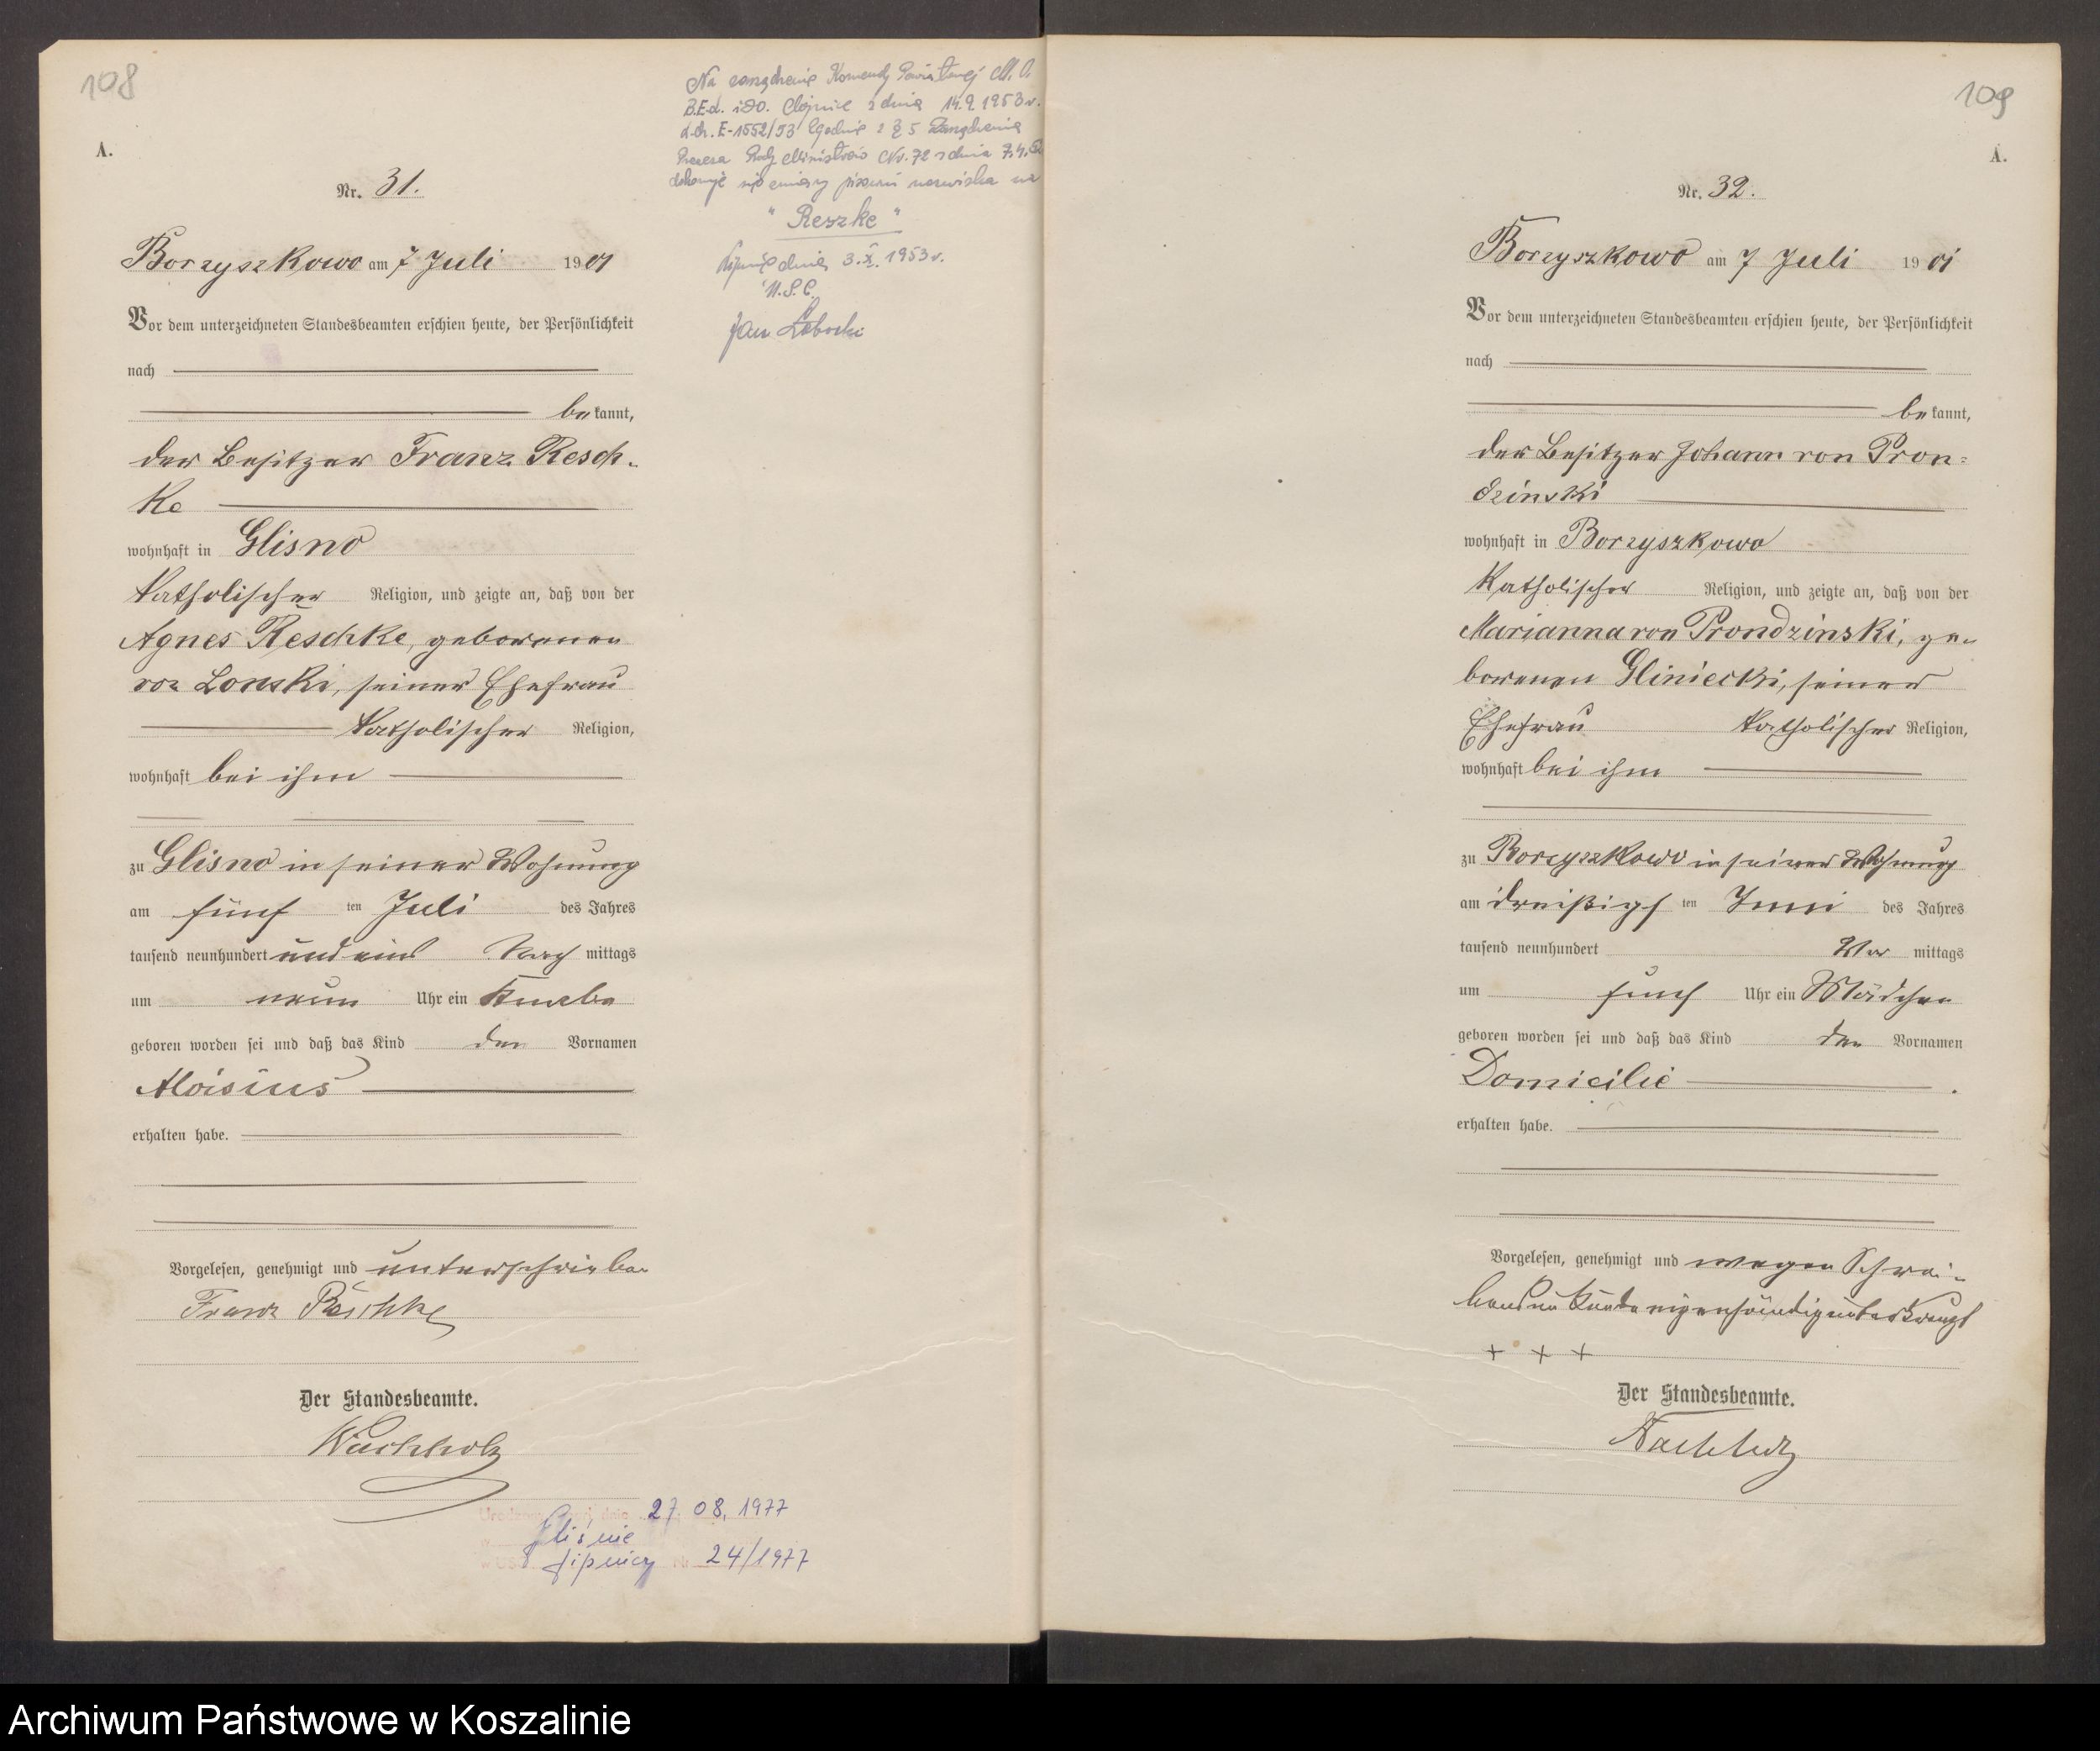 108
A.
Nr. 31.
Borzyszkowo am 7 Juli 1901
Vor dem unterzeichneten Standesbeamten erschien heute, der Persönlichkeit
nach
bekannt,
der Besitzer Franz Resch-
ke
wohnhaft in Glisno
katholischer Religion, und zeigte an, daß von der
Agnes Reschke, geborenen
von Lonski, seiner Ehefrau
katholischer Religion,
wohnhaft bei ihm
zu Glisno in seiner Wohnung
am fünf ten Juli des Jahres
tausend neunhundert und eins Nach mittags
um neun Uhr ein Knabe
geboren worden sei und daß das Kind den Vornamen
Aloisius
erhalten habe.
Vorgelesen, genehmigt und unterschrieben
Franz Reschke
Der Standesbeamte.
Wachholz
Na zarządzenie Komendy Powiatowej M.O.
B.E.d. i D.O. Chojnice z dnia 14.9.1953 r.
L.dz. E-1552/53 zgodnie z § 5 Zarządzenia
Prezesa Rady Ministrów Nr. 72 z dnia 7.4.
dokonuje się zmiany pisowni nazwiska na
"Reszke"
Lipnice dnia 3.X.1953 r.
U.S.C.
Jan
27.08.1977
Gliśnie
w USC Lipnicy Nr 24/1977
109
A.
Nr. 32.
Borzyszkowo am 7 Juli 1901
Vor dem unterzeichneten Standesbeamten erschien heute, der Persönlichkeit
nach
bekannt,
der Besitzer Johann von Pron-
dzinski
wohnhaft in Borzyszkowo
katholischer Religion, und zeigte an, daß von der
Marianna von Prondzinski, ge-
borenen Gliniecki, seiner
Ehefrau katholischer Religion,
wohnhaft bei ihm
zu Borzyszkowo in seiner Wohnung
am dreißigs ten Juni des Jahres
tausend neunhundert Vor mittags
um fünf Uhr ein Mädchen
geboren worden sei und daß das Kind den Vornamen
Domicilie
erhalten habe.
Vorgelesen, genehmigt und wegen Schrei-
bensunkunde eigenhändig unterkreuzt
+ + +
Der Standesbeamte.
Wachholz
Archiwum Państwowe w Koszalinie